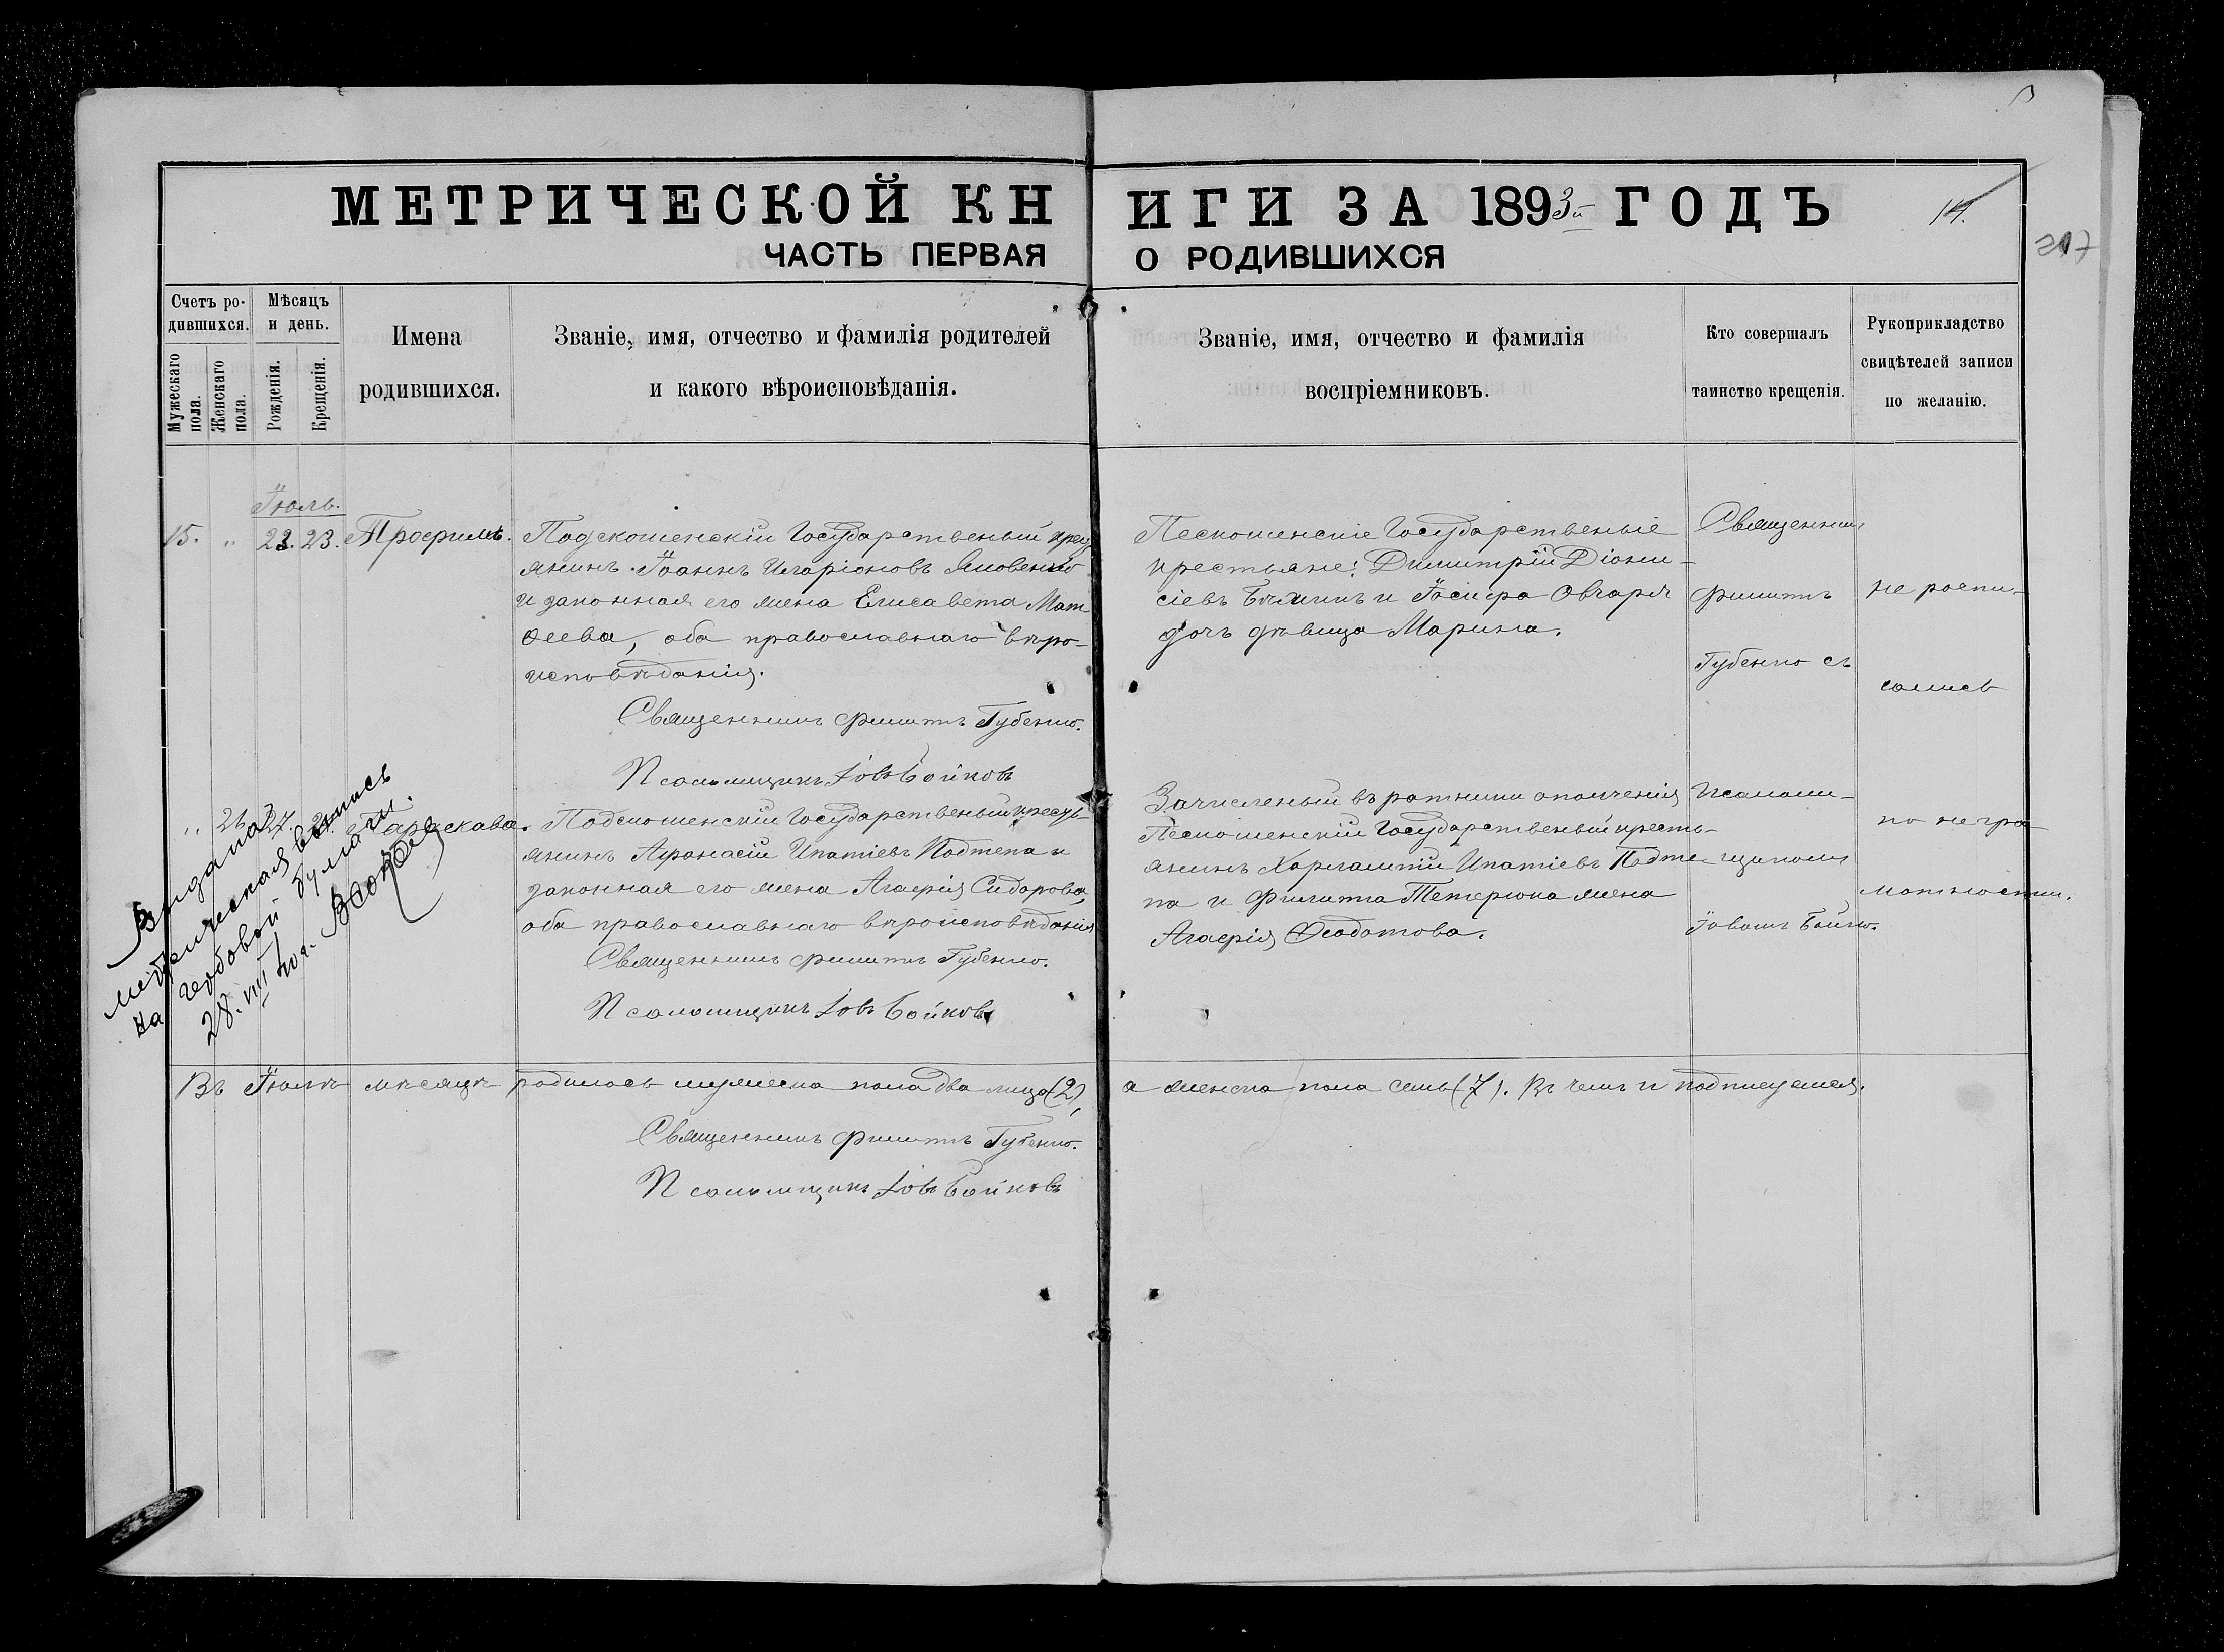 МЕТРИЧЕСКОЙ КНИГИ ЗА 1893й ГОДЪ
14.
217
ЧАСТЬ ПЕРВАЯ О РОДИВШИХСЯ
Счетъ ро-
дившихся.
Мужескаго пола.
Женскаго пола.
Мѣсяцъ
и день.
Рожденія.
Крещенія.
Имена
родившихся.
Званіе, имя, отчество и фамилія родителей
и какого вѣроисповѣданія.
Званіе, имя, отчество и фамилія
воспріемниковъ.
Кто совершалъ
таинство крещенія.
Рукоприкладство
свидѣтелей записи
по желанію.
Іюль.
15. „ 22. 23. Трофимъ.
Подскошенскій Государственый крест
янинъ Іоаннъ Иларіоновъ Яковенко
и законная его жена Елисавета Мат
ѳеева, оба православнаго вѣро-
исповѣданія.
Священникъ Филиппъ Губенко.
Псаломщикъ Іовъ Бойковъ
Пескошенскіе Государственыіе
крестьяне: Димитрій Діони-
сіевъ и Іосифа Овчаря
дочь дѣвица Марина.
Священник
Филиппъ
Губенко съ
не роспи-
сались
„ 26. 27. Параскава.
Подскошенскій Государственый крестъ-
янинъ Афанасій Ипатіевъ Подтепа и
законная его жена Агафія Сидорова,
оба православнаго вѣроисповѣданія
Священникъ Филиппъ Губенко.
Псаломщикъ Іовъ Бойковъ
Зачисленый въ ратники ополченія
Пескошенскій Государственый кресть-
янинъ Харлампій Ипатіевъ Подте-
па и Филиппа Тетерюка жена
Агафія Ѳеодотова.
псалом-
щикомъ
Іовомъ Бойко.
по негра
мотности.
Выдана
метрическая выпись
на гербовой бумаги.
28. VIII
Въ Іюлѣ мѣсяцѣ родилось мужеска пола два лица (2), а женска пола семь (7). Въ чемъ и подписуемся.
Священникъ Филиппъ Губенко.
Псаломщикъ Іовъ Бойковъ